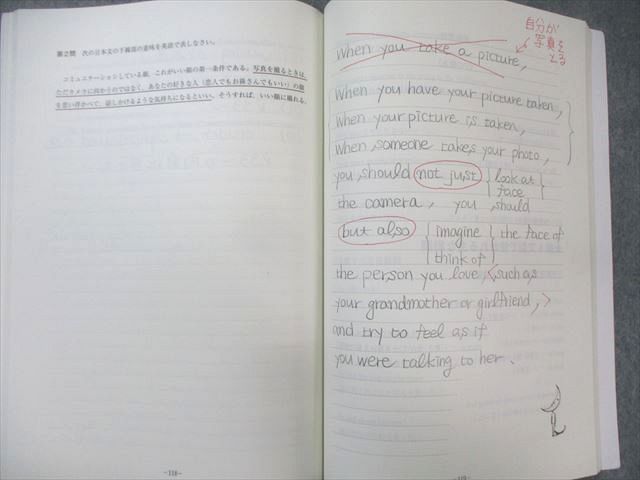 第2問 次の日本文の下線部の意味を英語で表しなさい。
コミュニケーションしている顔、これがいい顔の第一条件である。写真を撮るときは、
ただカメラに向かうのではなく、あなたの好きな人（恋人でもお孫さんでもいい）の顔
を思い浮かべて、話しかけるような気持ちになるといい。そうすれば、いい顔に撮れる。
-118-
自分が
写真を
とる
When you take a picture,
When you have your picture taken,
When your picture is taken,
When someone takes your photo,
you should not just { look at
face }
the camera, you should
but also { imagine
think of } the face of
the person you love, <such as
your grandmother or girlfriend,>
and try to feel as if
you were talking to her.
-119-